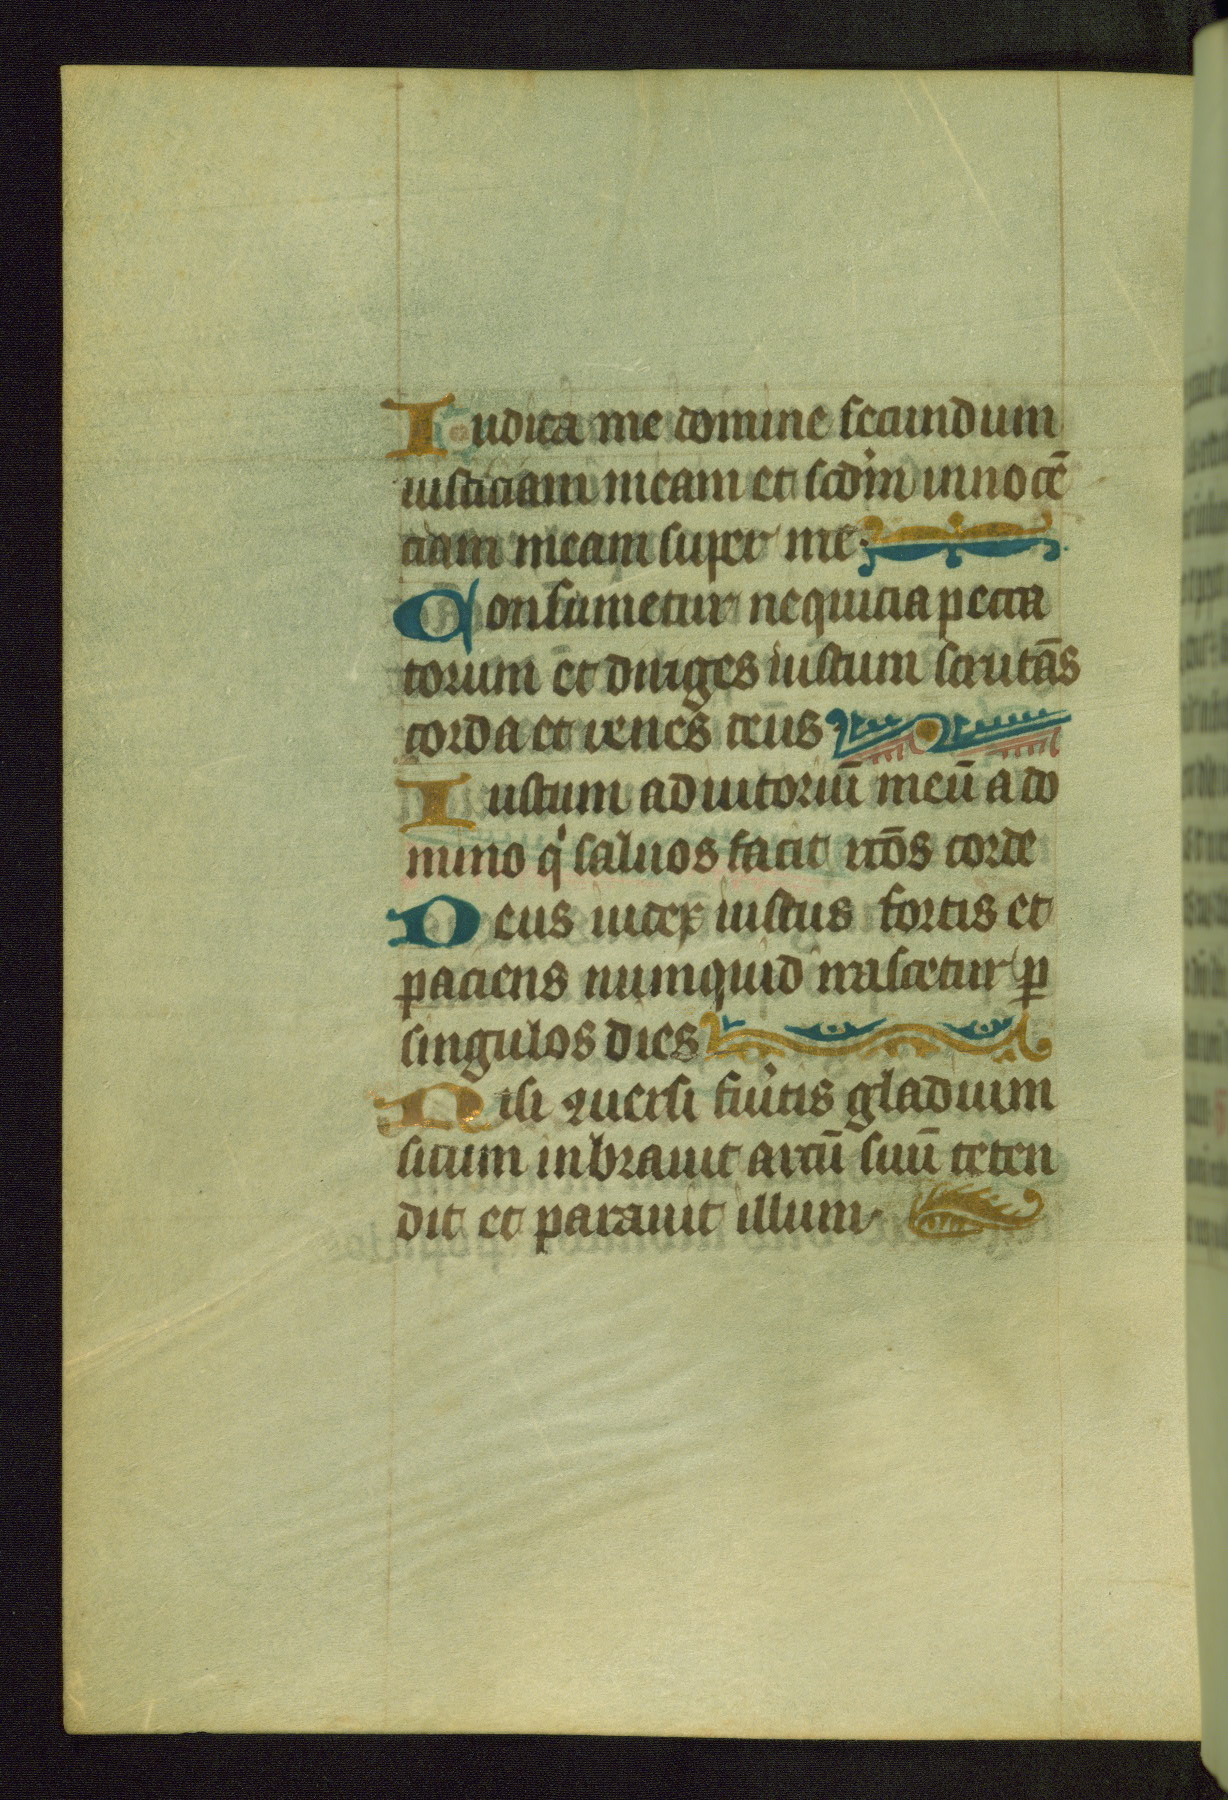 Iudica me domine secundum
iusticiam meam et scdm innocē
ciam meam super me.
Consumetur nequicia pecca
torum et diriges iustum scrutās
corda et renes deus
Iustum adiutoriū meū a do
mino qi saluos facit rcōs corde
Deus iudex iustus fortis et
paciens numquid irascetur ꝑ
singulos dies
Nisi ꝯuersi fuitis gladium
suum uibrauit arcū suū teten
dit et parauit illum